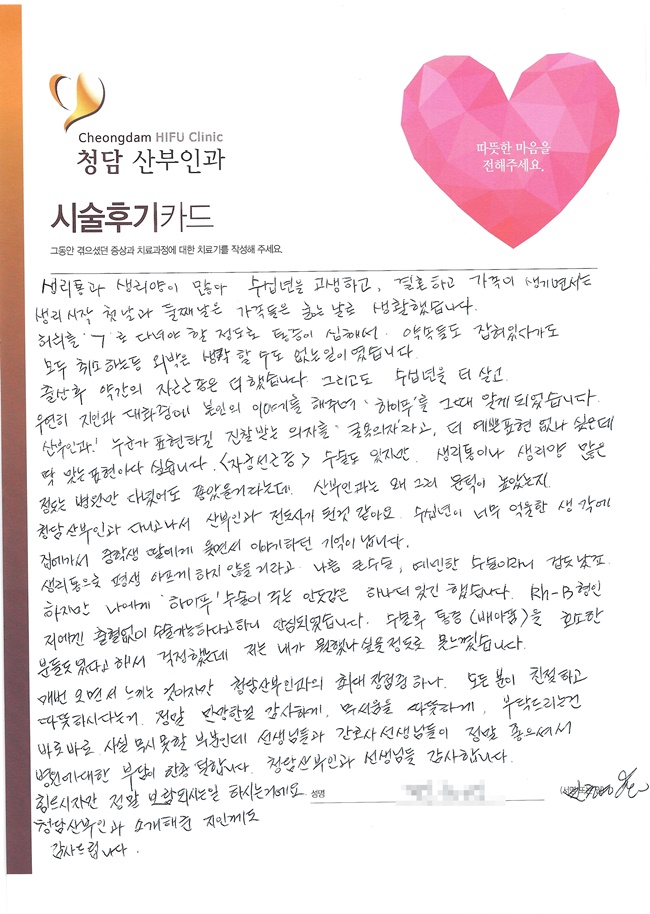 Cheongdam HIFU Clinic
청담 산부인과
따뜻한 마음을
전해주세요.
시술후기카드
그동안 겪으셨던 증상과 치료과정에 대한 치료기를 작성해 주세요.
생리통과 생리양이 많아 수십년을 고생하고, 결혼하고 가족이 생기면서는
생리 시작 첫날과 둘째날은 가족들은 굶는 날로 생활했습니다.
허리를 '7'로 다녀야 할 정도로 통증이 심해서 약속들도 잡혀있다가도
모두 취소하는등 외박은 생각 할 수도 없는일이였습니다.
출산후 약간의 자근근종은 더 했습니다 그리고도 수십년을 더 살고
우연히 지인과 대화중에 본인의 이야기를 해주며 '하이푸'를 그때 알게되었습니다.
산부인과! 누군가 표현하길 진찰받는 의자를 '굴욕의자'라고, 더 예쁜표현 없나 싶은데
딱 맞는표현이다 싶습니다. <자궁선근증> 수술도 있지만 생리통이나 생리양 많은
정도는 병원만 다녔어도 좋았을거라는데 산부인과는 왜 그리 문턱이 높았는지
청담산부인과 다니고나서 산부인과 전도사가 된것 같아요. 수십년이 너무 억울한 생각에
집에가서 중학생 딸에게 웃면서 이야기하던 기억이 납니다.
생리통으로 평생 아프게 하지 않을거라고 나름 큰수술, 예민한 수술이라니 겁도났죠.
하지만 나에게 '하이푸' 수술이 주는 안도감은 하나 더 있긴 했습니다. Rh-B형인
저에겐 출혈없이 수술가능하다고하니 안심되었습니다. 수술후 통증 (배아픔)을 호소한
분들도 있다고 해서 걱정했는데 저는 내가 뭘했나 싶을정도로 못느꼈습니다.
매번 오면서 느끼는 것이지만 청담산부인과의 최대 장점중 하나. 모든 분이 친절하고
따뜻하시다는거. 정말 만만한걸 감사하게, 무서움을 따뜻하게, 부탁드리는건
바로바로 사실 무시못할 부분인데 선생님들과 간호사 선생님들이 정말 좋으셔서
병원에대한 부담이 한층 덜합니다. 청담산부인과 선생님들 감사합니다.
힘드시지만 정말 보람되시는일 하시는거에요 성명
청담산부인과 소개해준 지인께도
감사드립니다.